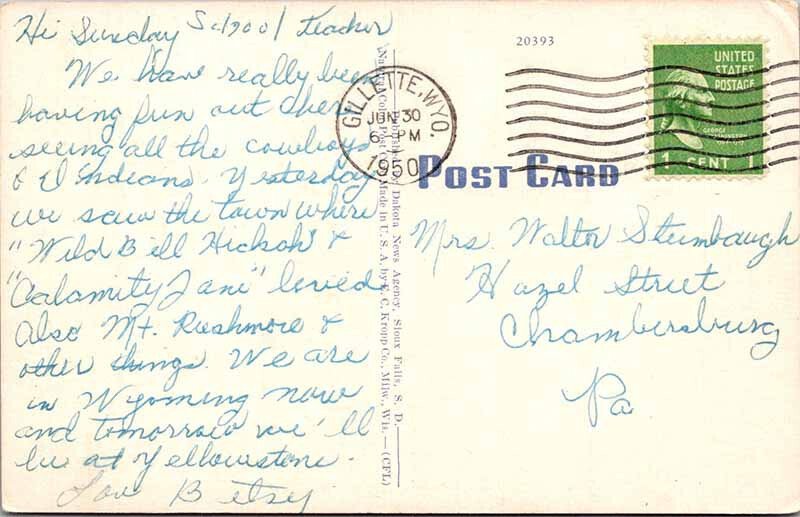 Hi Sunday School Teacher
We have really been
having fun out here
seeing all the cowboys
& Indians. Yesterday
we saw the town where
"Wild Bill Hickok" &
"Calamity Jane" lived
Also Mt. Rushmore &
other things. We are
in Wyoming now
and tomorrow we'll
be at Yellowstone.
Love Betsy
Dakota News Agency, Sioux Falls, S. D.
Made in U. S. A. by E. C. Kropp Co., Milw., Wis.—(CFL)
20393
GILLETTE, WYO.
JUN 30
PM
1950
UNITED
STATES
POSTAGE
GEORGE
WASHINGTON
1 CENT 1
POST CARD
Mrs. Walter Stumbaugh
Hazel Street
Chambersburg
Pa